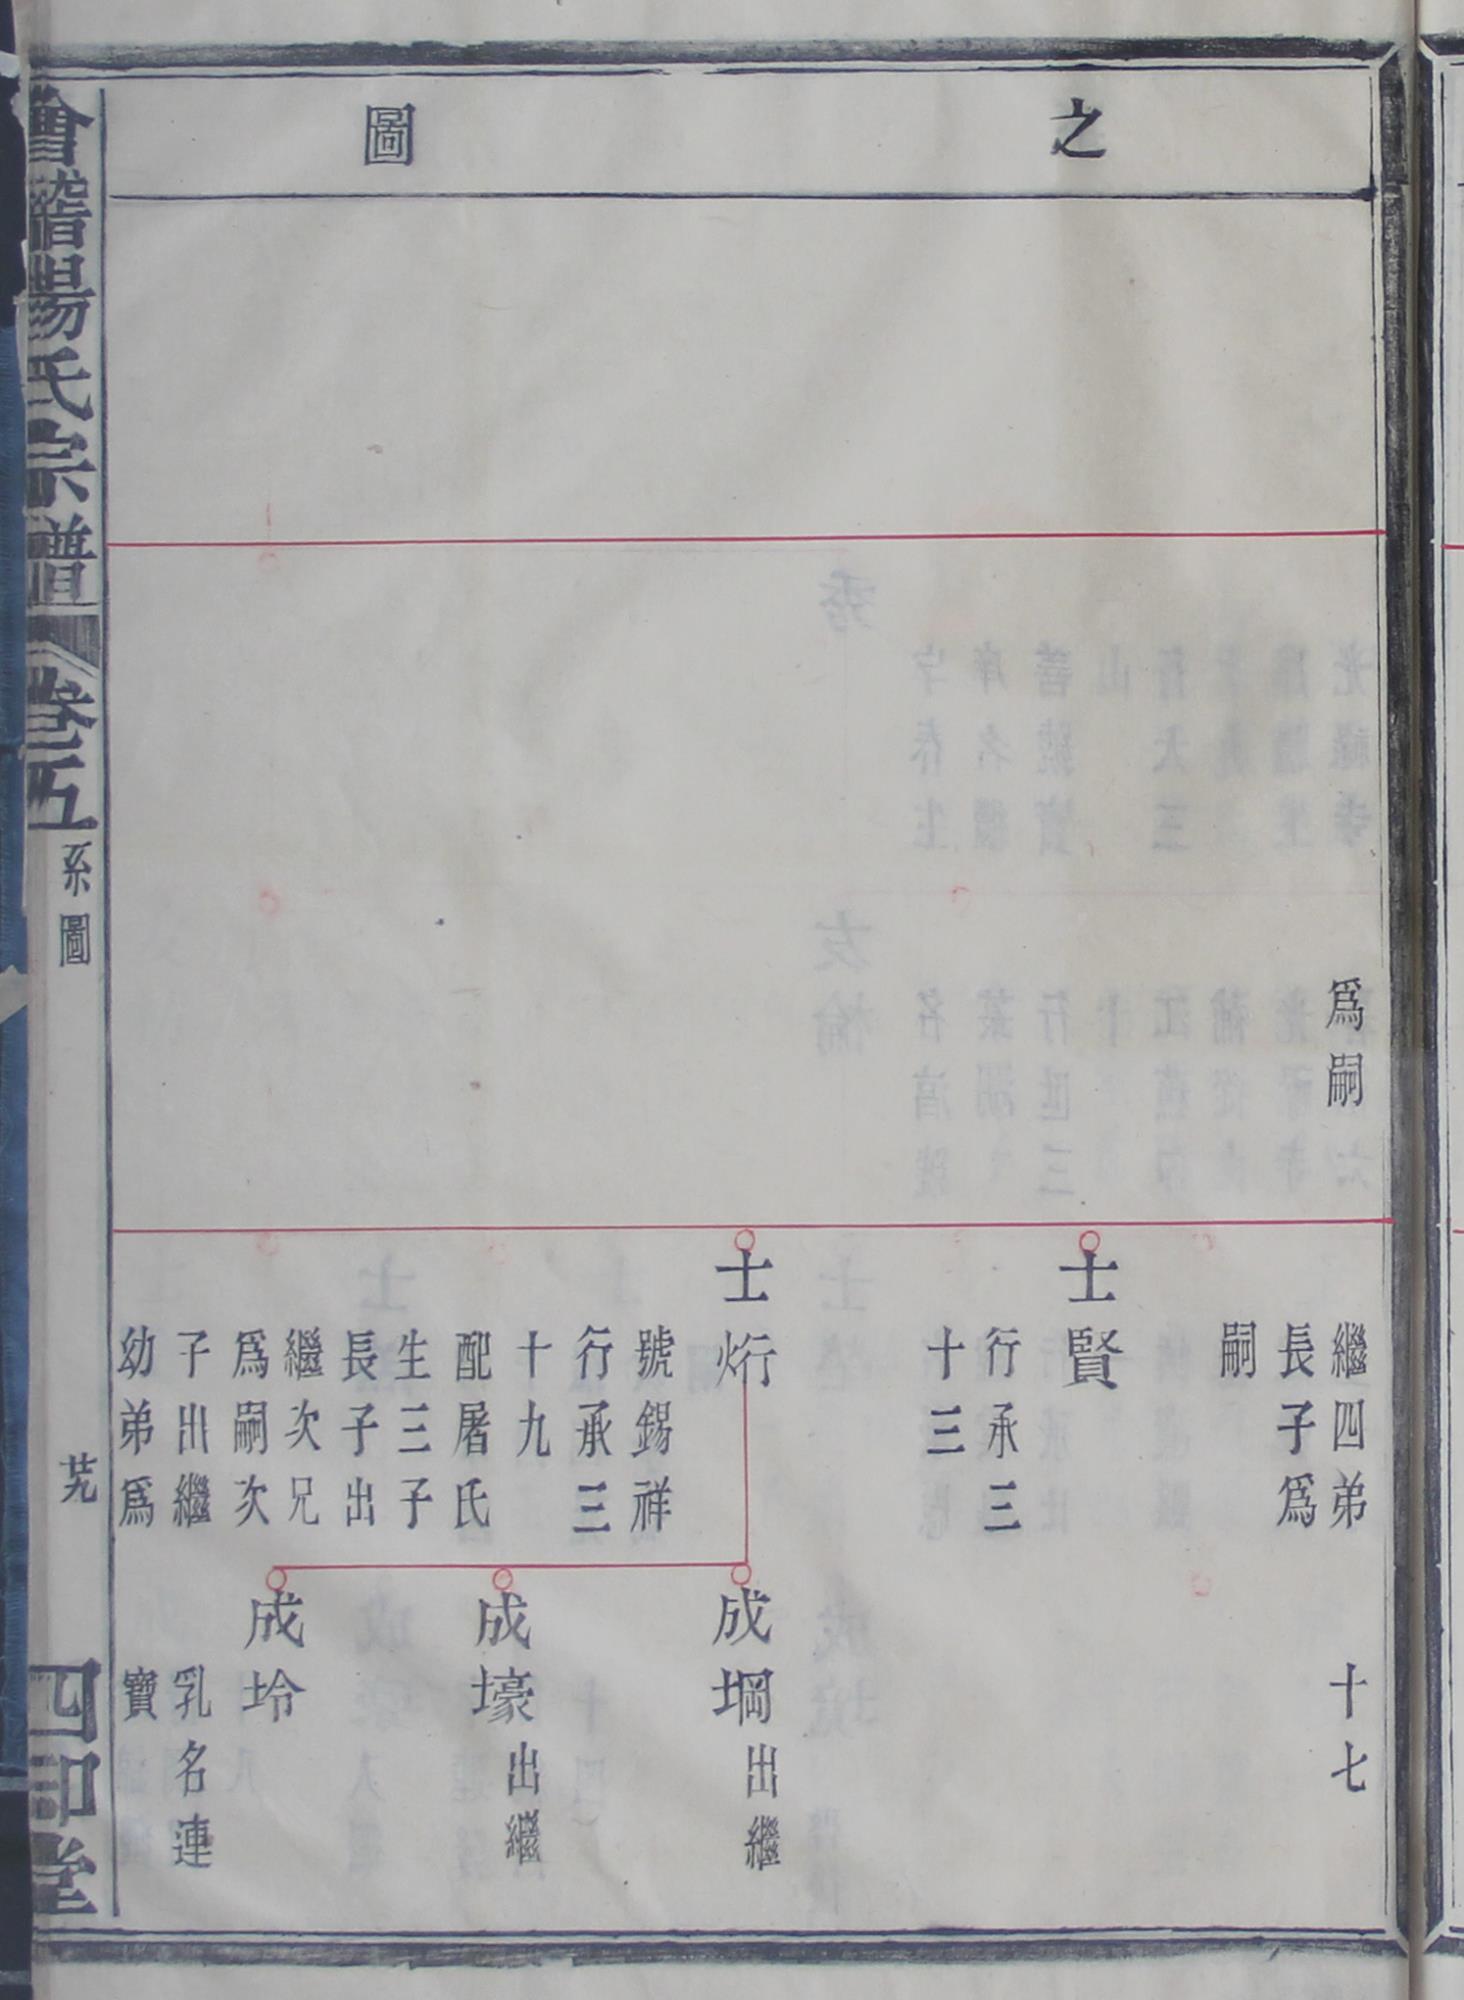 之
圖
爲嗣
繼四弟
長子爲
嗣
士賢
行承三
十三
士烆
號錫祥
行承三
十九
配屠氏
生三子
長子出
繼次兄
爲嗣次
子出繼
幼弟爲
十七
成堈出繼
成壕出繼
成坽
乳名連
寶
會稽楊氏宗譜
卷五
系圖
芄
四印堂